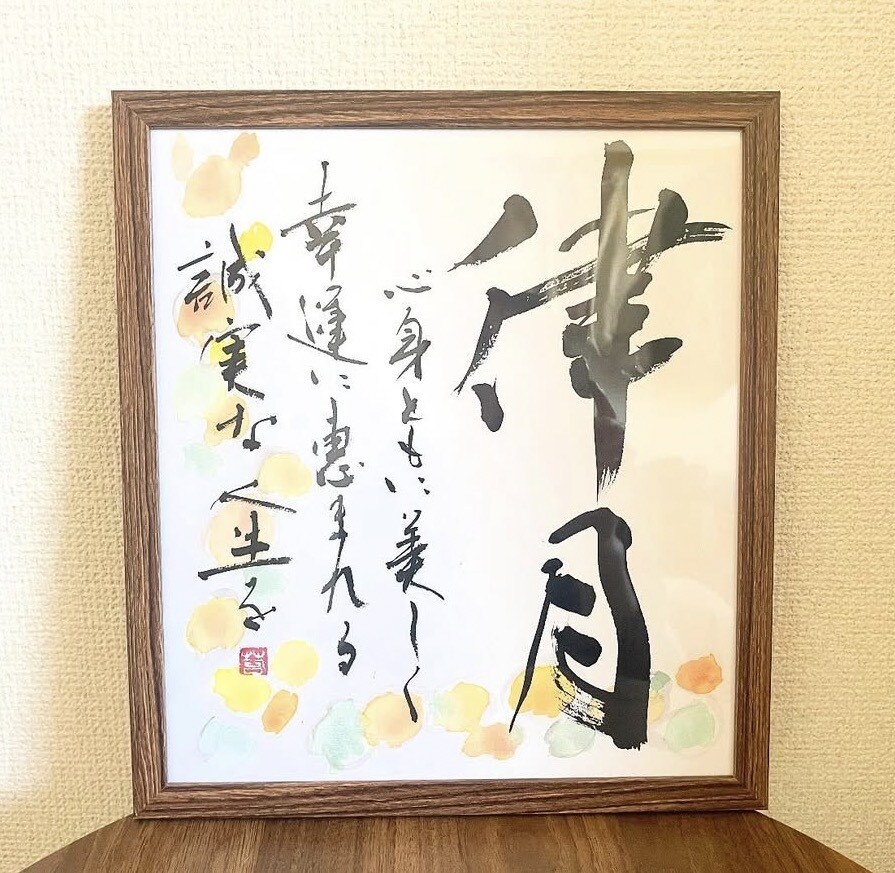 律月
心身ともに美しく
幸運に恵まれる
誠実な人生を